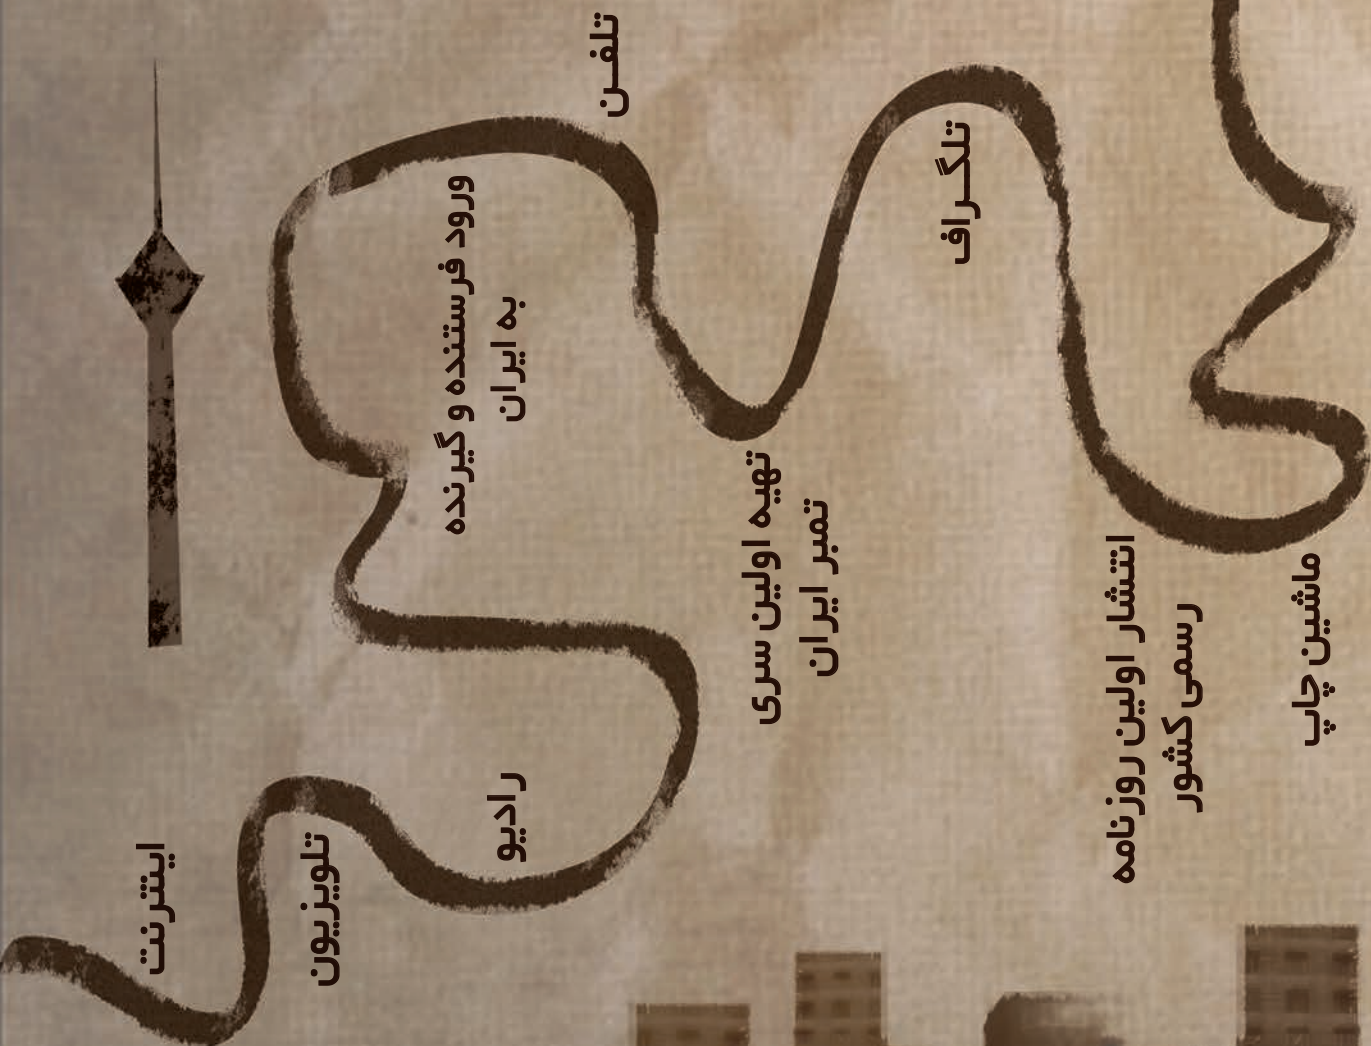 ماشین چاپ
انتشار اولین روزنامه
رسمی کشور
تلگراف
تهیه اولین سری
تمبر ایران
تلفن
ورود فرستنده و گیرنده
به ایران
رادیو
تلویزیون
اینترنت